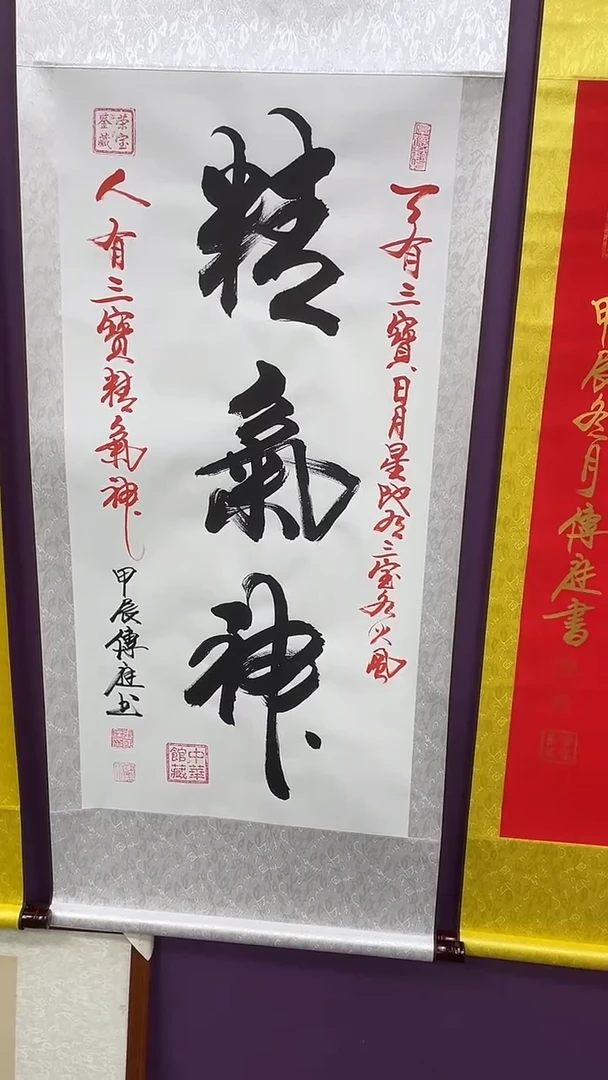 精氣神
天有三寶日月星地有三宝水火風
人有三寶精氣神
甲辰傳庭书
荣宝鉴藏
中華館藏
甲辰冬月傳庭書